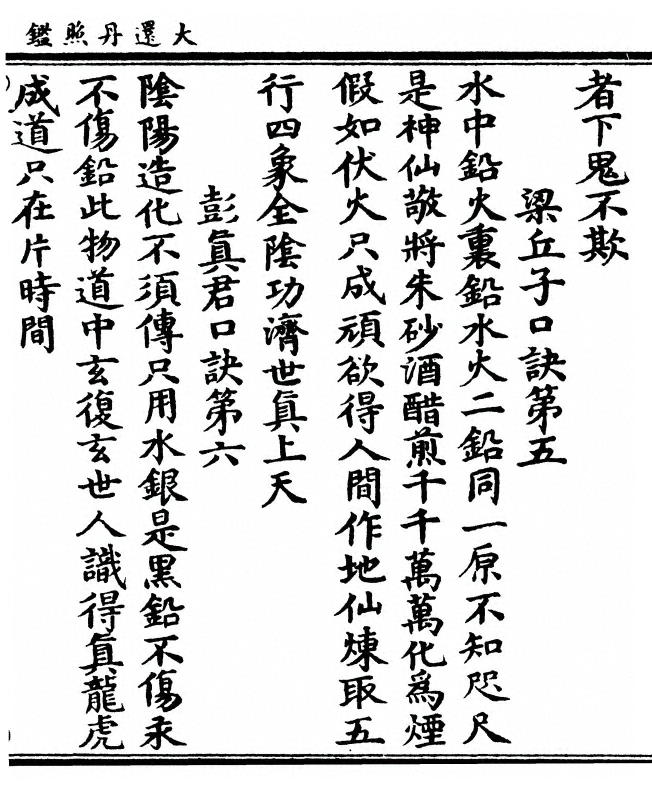 大還丹照鑑
者下鬼不欺
梁丘子口訣第五
水中鉛火裏鉛水火二鉛同一原不知咫尺
是神仙敬將朱砂酒醋煎千千萬萬化為煙
假如伏火只成頑欲得人間作地仙煉取五
行四象全陰功濟世真上天
彭真君口訣第六
陰陽造化不須傳只用水銀是黑鉛不傷汞
不傷鉛此物道中玄復玄世人識得真龍虎
成道只在片時間